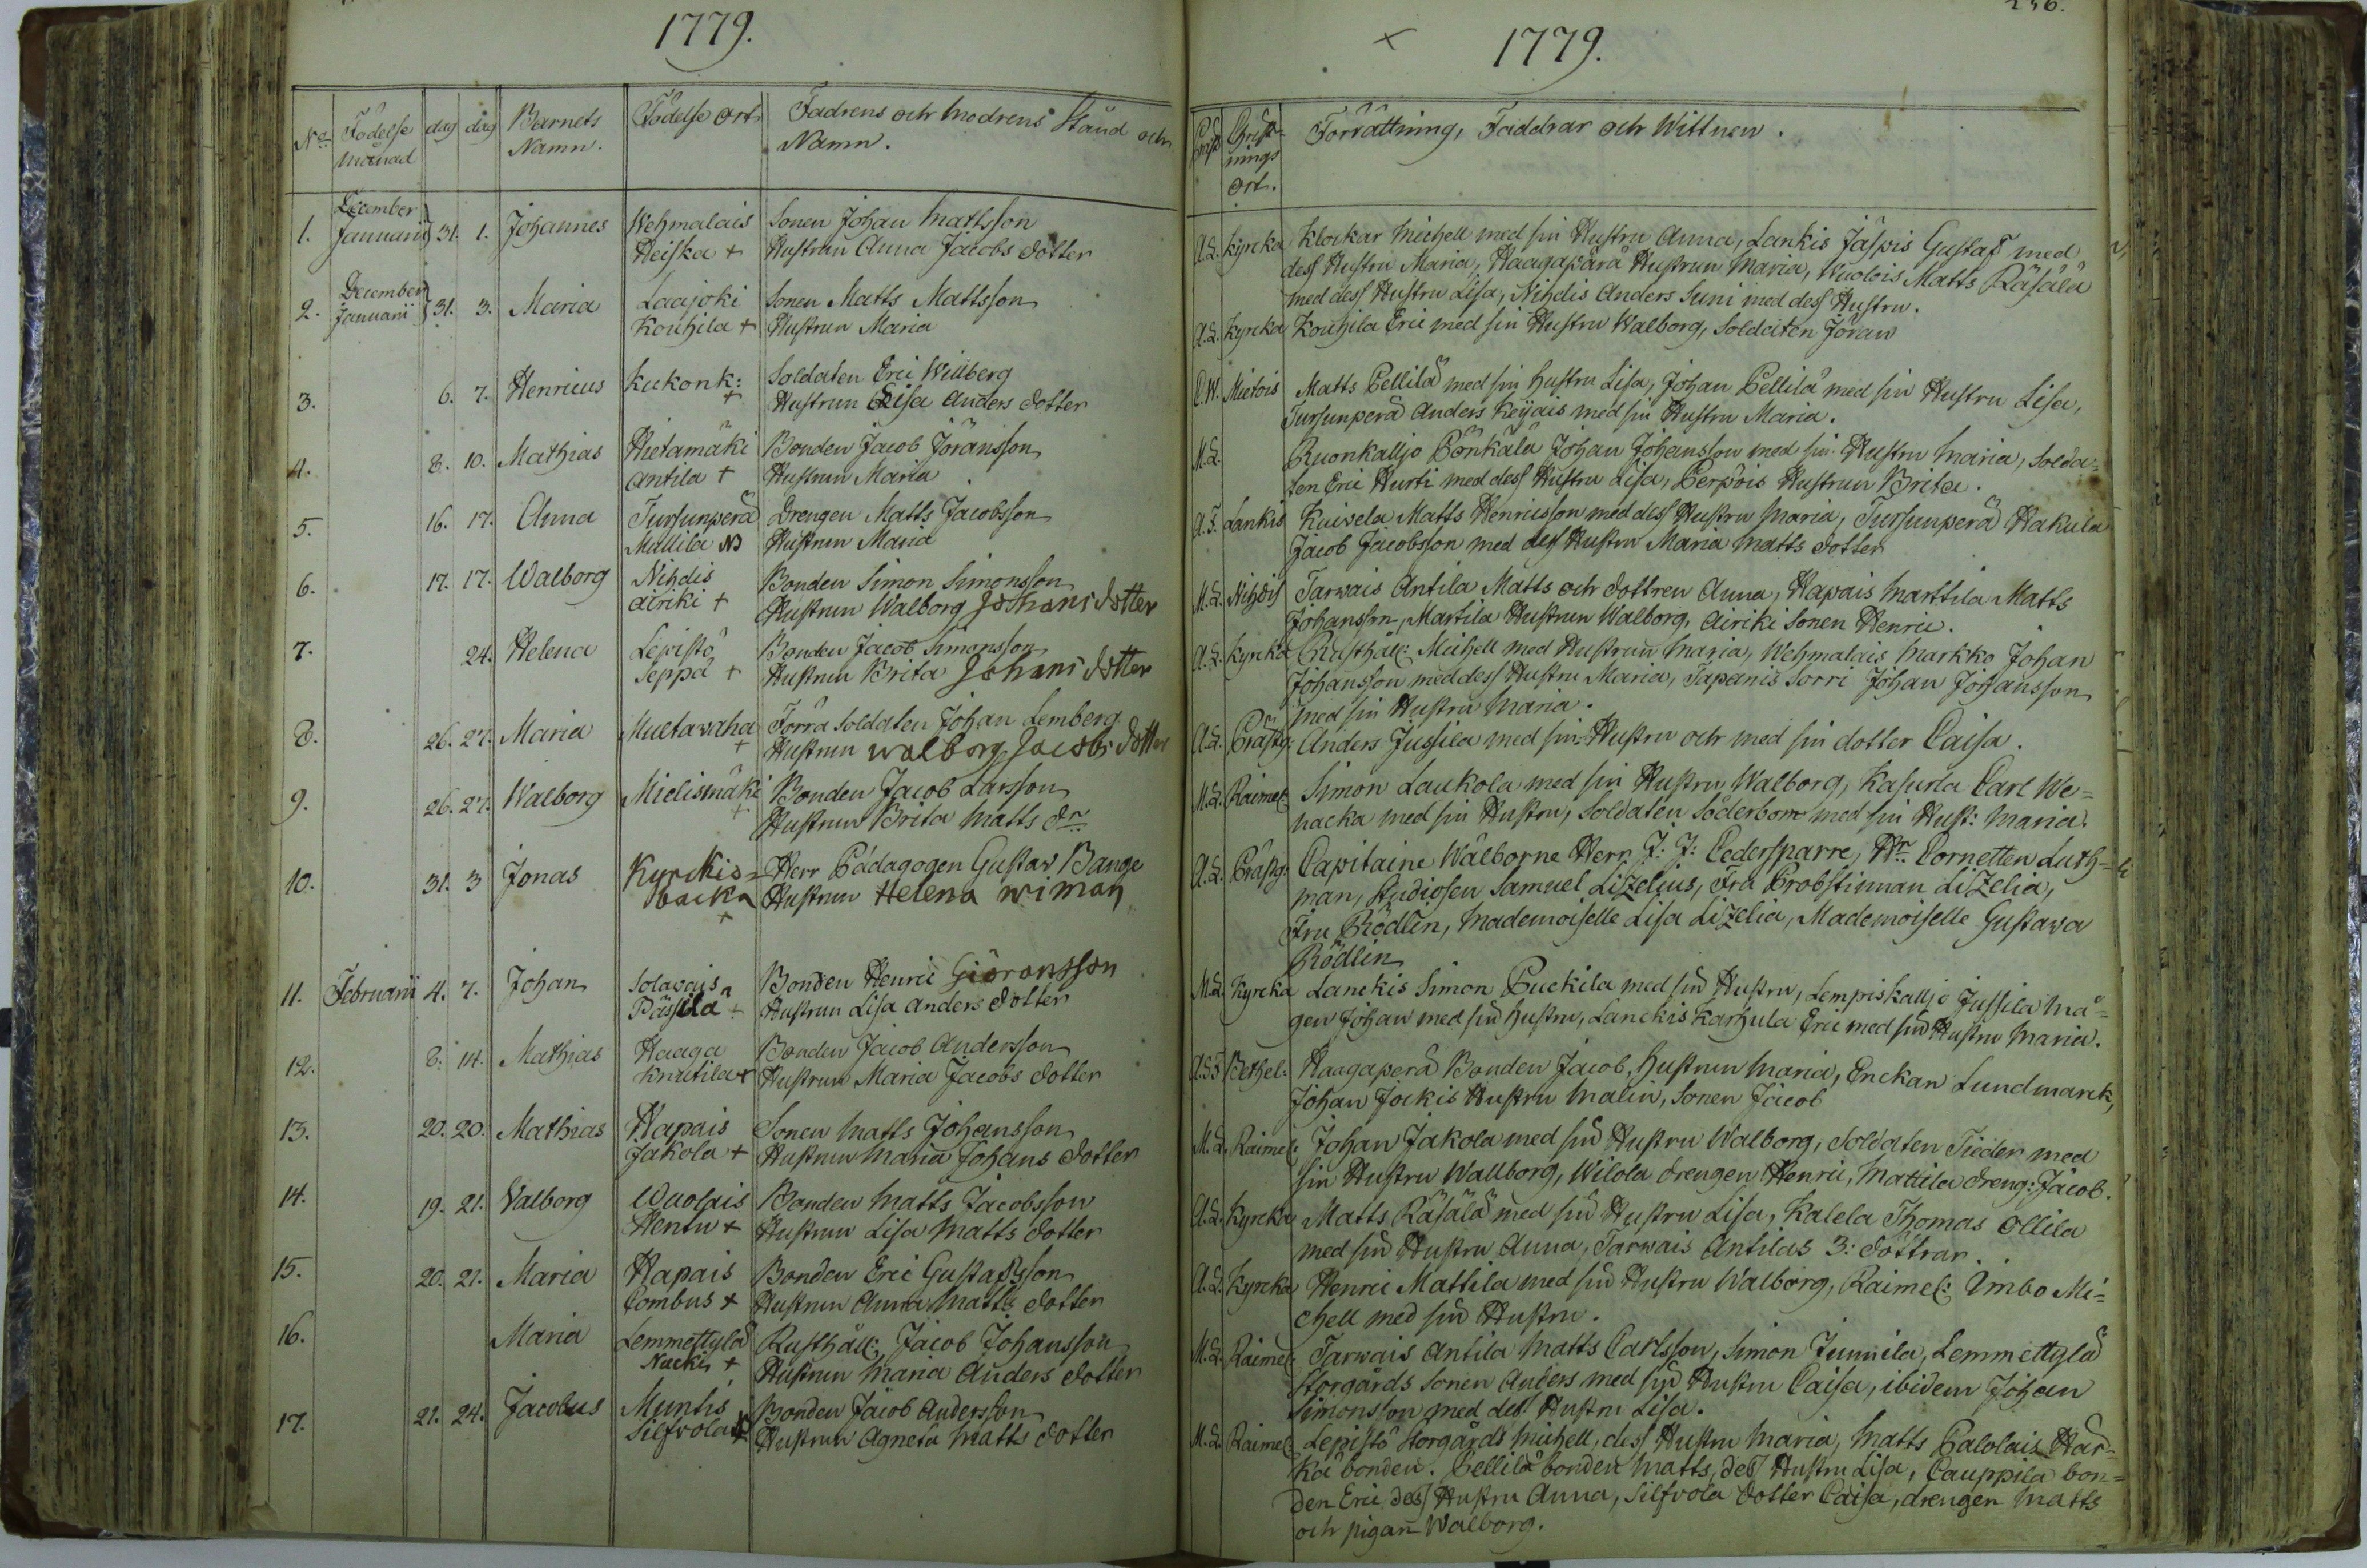 1779.
No Födelse månad dag dag Barnets Namn. Födelse ort Fadrens och modrens stånd och Namn.
1. December Januarii 31. 1. Johannes Wehmalais Heiska + Sonen Johan Mattsson
Hustrun Anna Jacobs dotter
2. December Januarii 31. 3. Maria Laajoki Kouhila + Sonen Matts Mattsson
Hustrun Maria
3. 6. 7. Henricus Kukonk: + Soldaten Eric Willberg
Hustrun Lisa Anders dotter
4. 8. 10. Mathias Hietamäki Antila + Bonden Jacob Jöransson
Hustrun Maria
5. 16. 17. Anna Tursunperä Mallila NB Drengen Matts Jacobsson
Hustrun Maria
6. 17. 17. Walborg Nihdis Airiki + Bonden Simon Simonsson
Hustrun Walborg Johans dotter
7. 24. Helena Lepistö Seppä + Bonden Jacob Simonsson
Hustrun Brita Johans dotter
8. 26. 27. Maria Muetawaha + Förra Soldaten Johan Lemberg
Hustrun Walborg Jacobs dotter
9. 26. 27. Walborg Mielismäki + Bonden Jacob Larsson
Hustrun Brita Matts dr
10. 31. 3 Jonas Kyrckis=backa + Herr Pädagogen Gustav Bange
Hustrun Helena Wiman
11. Februarii 4. 7. Johan Solavais Pässilä + Bonden Henric Giöransson
Hustrun Lisa Anders dotter
12. 8. 14. Mathias Haaga Knutila + Bonden Jacob Andersson
Hustrun Maria Jacobs dotter
13. 20. 20. Mathias Hapais Jakola + Sonen Matts Johansson
Hustrun Maria Johans dotter
14. 19. 21. Valborg Wuolais Hentu + Bonden Matts Jacobsson
Hustrun Lisa Matts dotter
15. 20. 21. Maria Hapais Combus + Bonden Eric Gustafsson
Hustrun Anna Matts dotter
16. Maria Lemmettylä Nucki + Rusthåll: Jacob Johansson
Hustrun Maria Anders dotter
17. 21. 24. Jacobus Muntis Silfvola + Bonden Jacob Andersson
Hustrun Agneta Matts dotter
1779.
Christnings ort. Förrättning, Faddrar och Wittnen.
A.L. Kyrcka Klockar Michell med sin Hustru Anna, Lankis Jaspis Gustaf med
dess Hustru Maria, Haagaperä Hustrun Maria, Wuolois Matts Räsälä
med dess Hustru Lisa, Nihdis Anders Suni med dess Hustru.
A.L. Kyrcka Kouhila Eric med sin Hustru Walborg, Soldaten Jöran
C.W. Mietois Matts Pellilä med sin Hustru Lisa, Johan Pellilä med sin Hustru Lisa,
Tursunperä Anders Keijais med sin Hustru Maria.
M.L. Ruonkalljo Pönkälä Johan Johansson med sin Hustru Maria, Solda=
ten Eric Hurti med dess Hustru Lisa, Perpois Hustrun Brita.
A.F. Lankis Kuisela Matts Henricsson med dess Hustru Maria, Tursunperä Hakula
Jacob Jacobsson med dess Hustru Maria Matts dotter
M.L. Nihdis Tarwais Antila Matts och dottren Anna, Hapais Marttila Matts
Johansson, Martila Hustrun Walborg, Airiki Sonen Henric.
A.L. Kyrcka Rusthåll: Michell med Hustrun Maria, Wehmalais Markko Johan
Johansson med dess Hustru Maria, Tapanis Sorri Johan Johansson
med sin Hustru Maria.
A.L. Prästg: Anders Jussila med sin Hustru och med sin dotter Caisa.
M.L. Raimel: Simon Laukola med sin Hustru Walborg, Kasurla Carl We=
nacka med sin Hustru, Soldaten Söderbom med sin Hust: Maria.
A.L. Prästg: Capitaine Wälborne Herr J: J: Cedersparre, Hr Cornetten Luth=
man, Studiosen Samuel Lizelius, Fru Probstinnan Lizelia,
Fru Rödlin, Mademoiselle Lisa Lizelia, Mademoiselle Gustava
Rödlin
M.L. Kyrcka Lanckis Simon Puckila med sin Hustru, Lempiskalljo Jussila må=
gen Johan med sin Hustru, Lanckis Karhula Eric med sin Hustru Maria.
Bethel: Haagaperä Bonden Jacob, Hustrun Maria, Enckan Lundmarck,
Johan Jockis Hustru Malin, Sonen Jacob
M.L. Raimel: Johan Jakola med sin Hustru Walborg, Soldaten Tieder med
sin Hustru Wallborg, Wilola drengen Henric, Mattila dreng: Jacob.
A.L. Kyrcka Matts Räsälä med sin Hustru Lisa, Kalela Thomas Ollila
med sin Hustru Anna, Tarwais Antilas 3: döttrar.
A.L. Kyrcka Henric Mattila med sin Hustru Walborg, Raimel: Simbo Mi=
chell med sin Hustru.
M.L. Raimel: Tarwais Antila Matts Carlsson, Simon Junnila, Lemmettylä
Storgårds Sonen Anders med sin Hustru Caisa, ibidem Johan
Simonsson med dess Hustru Lisa.
M.L. Raimel: Lepistö Storgårds Michell, dess Hustru Maria, Matts Palolais Här=
kä bonden. Pellilä bonden Matts, dess Hustru Lisa, Cauppila bon=
den Eric, dess Hustru Anna, Silfvola dotter Caisa, drengen Matts
och pigan Walborg.